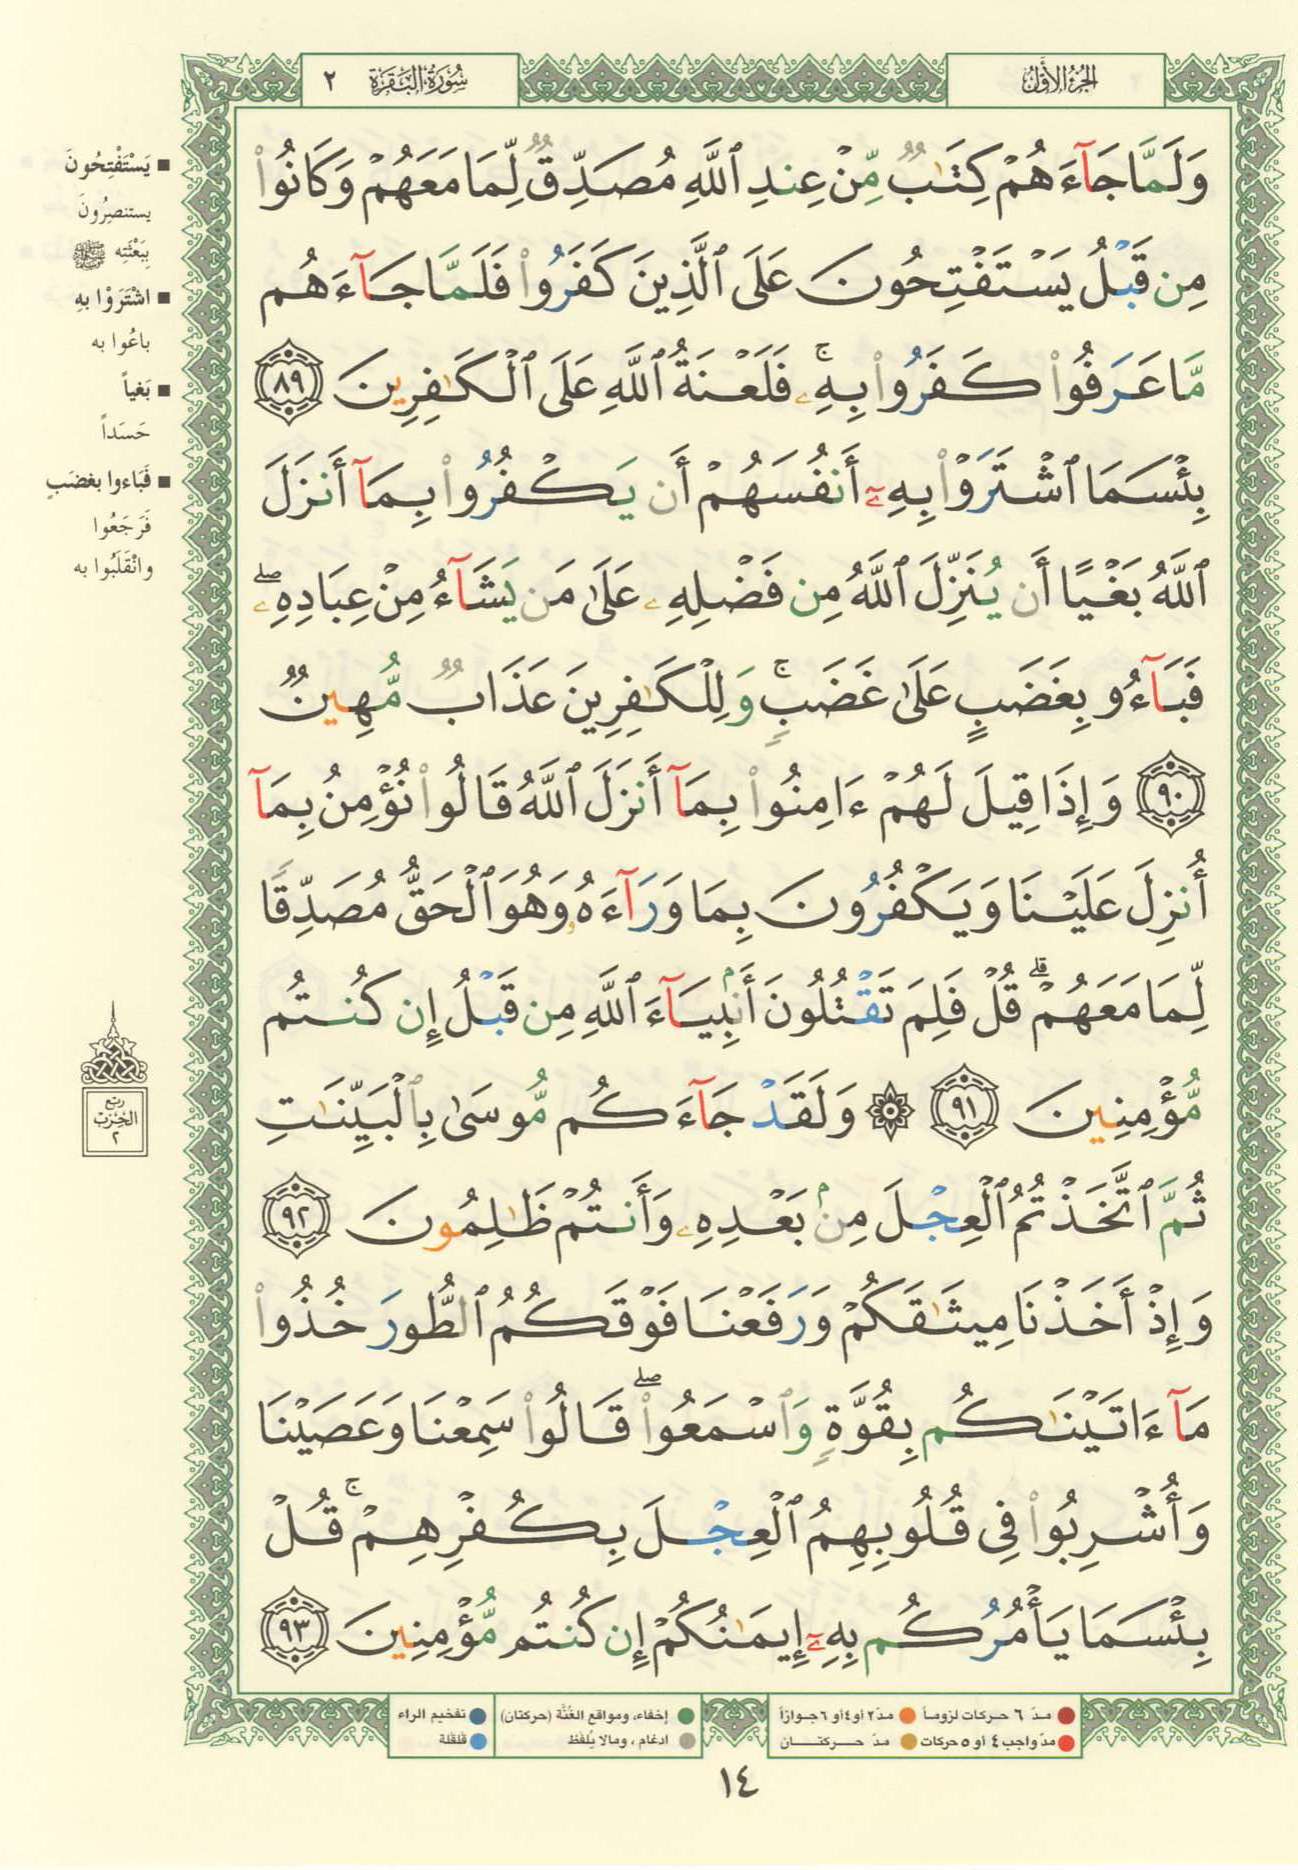 الجزء الأول
سورة البقرة ٢
وَلَمَّا جَآءَهُمْ كِتَٰبٌ مِّنْ عِندِ ٱللَّهِ مُصَدِّقٌ لِّمَا مَعَهُمْ وَكَانُوا۟
مِن قَبْلُ يَسْتَفْتِحُونَ عَلَى ٱلَّذِينَ كَفَرُوا۟ فَلَمَّا جَآءَهُم
مَّا عَرَفُوا۟ كَفَرُوا۟ بِهِۦ ۚ فَلَعْنَةُ ٱللَّهِ عَلَى ٱلْكَٰفِرِينَ ٨٩
بِئْسَمَا ٱشْتَرَوْا۟ بِهِۦٓ أَنفُسَهُمْ أَن يَكْفُرُوا۟ بِمَآ أَنزَلَ
ٱللَّهُ بَغْيًا أَن يُنَزِّلَ ٱللَّهُ مِن فَضْلِهِۦ عَلَىٰ مَن يَشَآءُ مِنْ عِبَادِهِۦ ۖ
فَبَآءُو بِغَضَبٍ عَلَىٰ غَضَبٍ ۚ وَلِلْكَٰفِرِينَ عَذَابٌ مُّهِينٌ
٩٠ وَإِذَا قِيلَ لَهُمْ ءَامِنُوا۟ بِمَآ أَنزَلَ ٱللَّهُ قَالُوا۟ نُؤْمِنُ بِمَآ
أُنزِلَ عَلَيْنَا وَيَكْفُرُونَ بِمَا وَرَآءَهُۥ وَهُوَ ٱلْحَقُّ مُصَدِّقًا
لِّمَا مَعَهُمْ ۗ قُلْ فَلِمَ تَقْتُلُونَ أَنۢبِيَآءَ ٱللَّهِ مِن قَبْلُ إِن كُنتُم
مُّؤْمِنِينَ ٩١ ۞ وَلَقَدْ جَآءَكُم مُّوسَىٰ بِٱلْبَيِّنَٰتِ
ثُمَّ ٱتَّخَذْتُمُ ٱلْعِجْلَ مِنۢ بَعْدِهِۦ وَأَنتُمْ ظَٰلِمُونَ ٩٢
وَإِذْ أَخَذْنَا مِيثَٰقَكُمْ وَرَفَعْنَا فَوْقَكُمُ ٱلطُّورَ خُذُوا۟
مَآ ءَاتَيْنَٰكُم بِقُوَّةٍ وَٱسْمَعُوا۟ ۖ قَالُوا۟ سَمِعْنَا وَعَصَيْنَا
وَأُشْرِبُوا۟ فِى قُلُوبِهِمُ ٱلْعِجْلَ بِكُفْرِهِمْ ۚ قُلْ
بِئْسَمَا يَأْمُرُكُم بِهِۦٓ إِيمَٰنُكُمْ إِن كُنتُم مُّؤْمِنِينَ ٩٣
■ يَسْتَفْتِحُونَ
يستنصِرُونَ
بِبَعْثَتِه ﷺ
■ اشْتَرَوْا بِهِ
باعُوا به
■ بَغياً
حَسَداً
■ فَبَاءوا بغضَبٍ
فَرَجَعُوا
وانْقَلَبُوا به
ربع
الحزب
٢
مدّ ٦ حركات لزوماً ● مدّ ٢ أو ٤ أو ٦ جوازاً
مدّ واجب ٤ أو ٥ حركات ● مدّ حركتان
إخفاء، ومواقع الغُنَّة (حركتان) ● تفخيم الراء
ادغام، ومالا يُلفَظ ● قلقلة
١٤